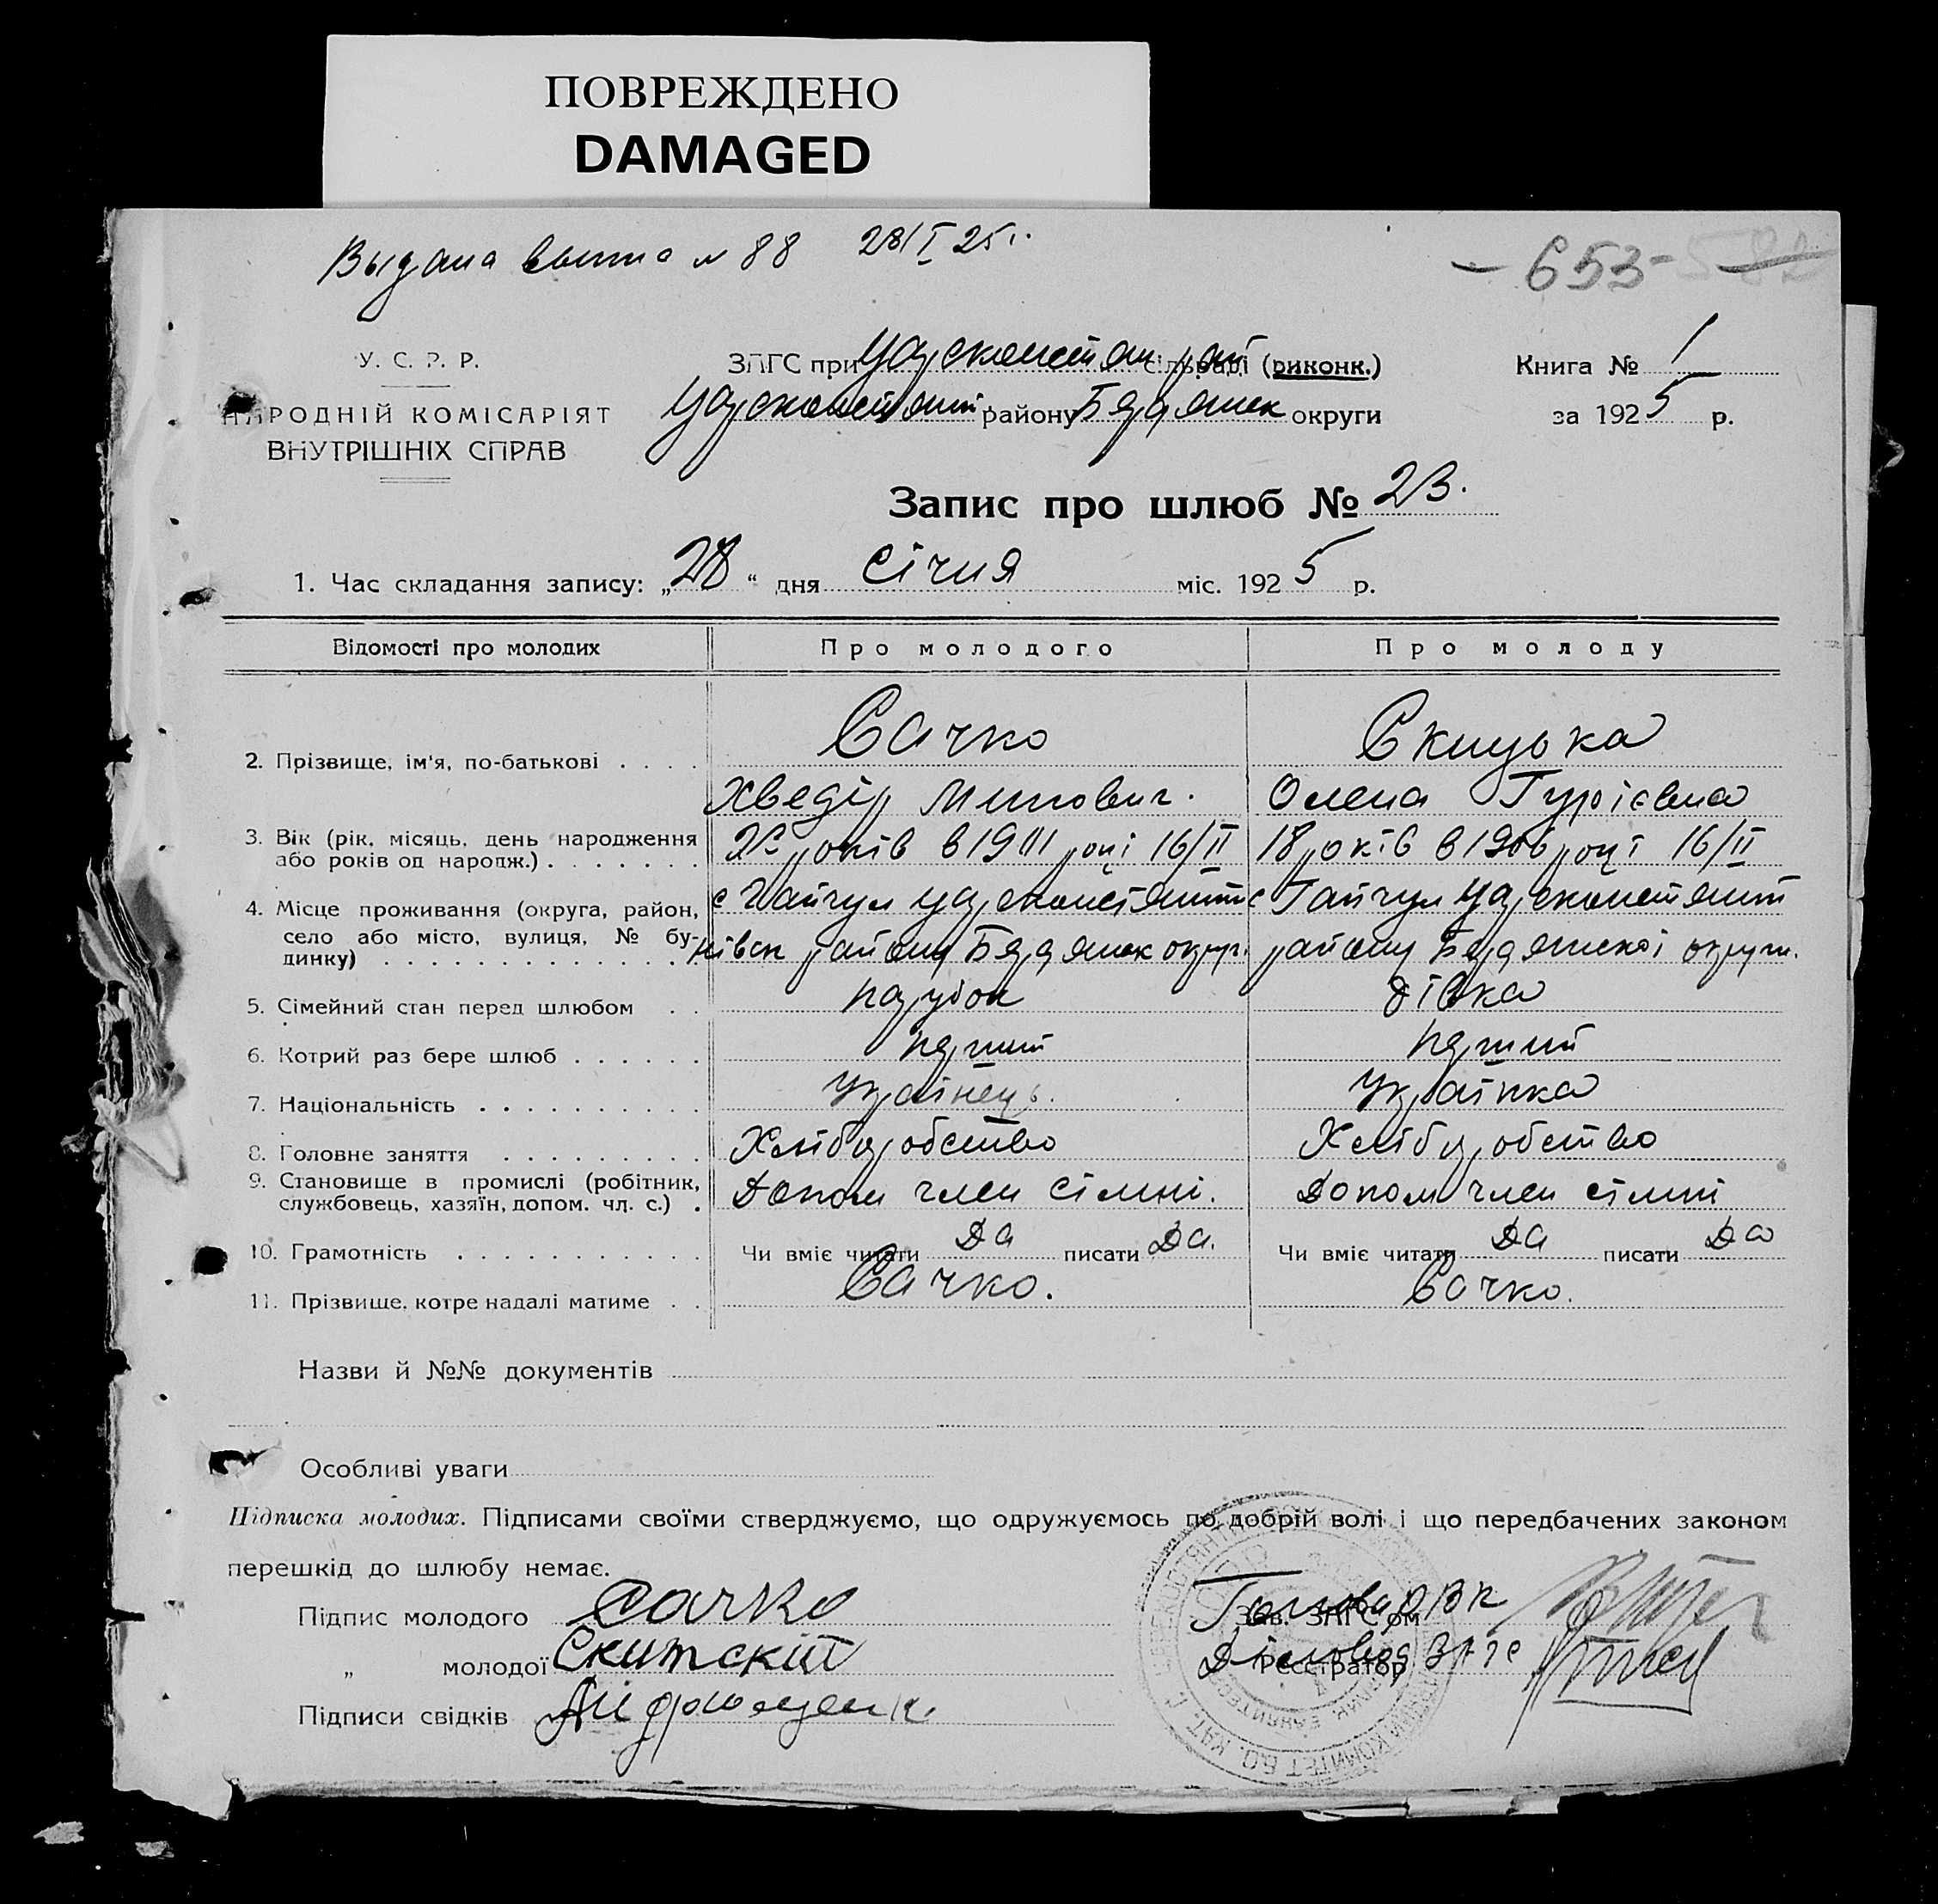 ПОВРЕЖДЕНО
DAMAGED
Выдана выпись № 88 28/I 25 г.
- 653 - 582
У. С. Р. Р.
НАРОДНІЙ КОМІСАРІЯТ
ВНУТРІШНІХ СПРАВ
ЗАГС при Царсконстан рай сільраді (риконк.)
Царсконстянт району Бердянск округи
Книга № 1
за 1925 р.
Запис про шлюб № 23.
1. Час складання запису: „28“ дня січня міс. 1925 р.
Відомості про молодих Про молодого Про молоду
2. Прізвище, ім'я, по-батькові . . . . Сачко Скицька
Хведір Минович. Олена Гуріевна
3. Вік (рік, місяць, день народження або років од народж.) . . . . . . . років в 1901 році 16/II 18 років в 1906 році 16/II
4. Місце проживання (округа, район, село або місто, вулиця, № будинку) . . . . . . . . . . . . . . с Гайчул Царсконстянтинівск району Бердянск округ. с Гайчул Царсконстянт району Бердянскоі округи.
5. Сімейний стан перед шлюбом . . парубок дівка
6. Котрий раз бере шлюб . . . . . . перший перший
7. Національність . . . . . . . . . . Українець. Українка
8. Головне заняття . . . . . . . . . Хліборобство Хліборобство
9. Становище в промислі (робітник, службовець, хазяїн, допом. чл. с.) . Допом член сімні. Допом член сімні
10. Грамотність . . . . . . . . . . . Чи вміє читати Да писати Да. Чи вміє читати Да писати Да
11. Прізвище, котре надалі матиме . . Сачко. Сачко.
Назви й №№ документів
Особливі уваги
Підписка молодих. Підписами своїми стверджуємо, що одружуємось по добрій волі і що передбачених законом
перешкід до шлюбу немає.
Підпис молодого Сачко
Голова РВК
Зав. ЗАГС'ом
„ молодої Скитскій
Діловод ЗАГС
Реєстратор
Підписи свідків